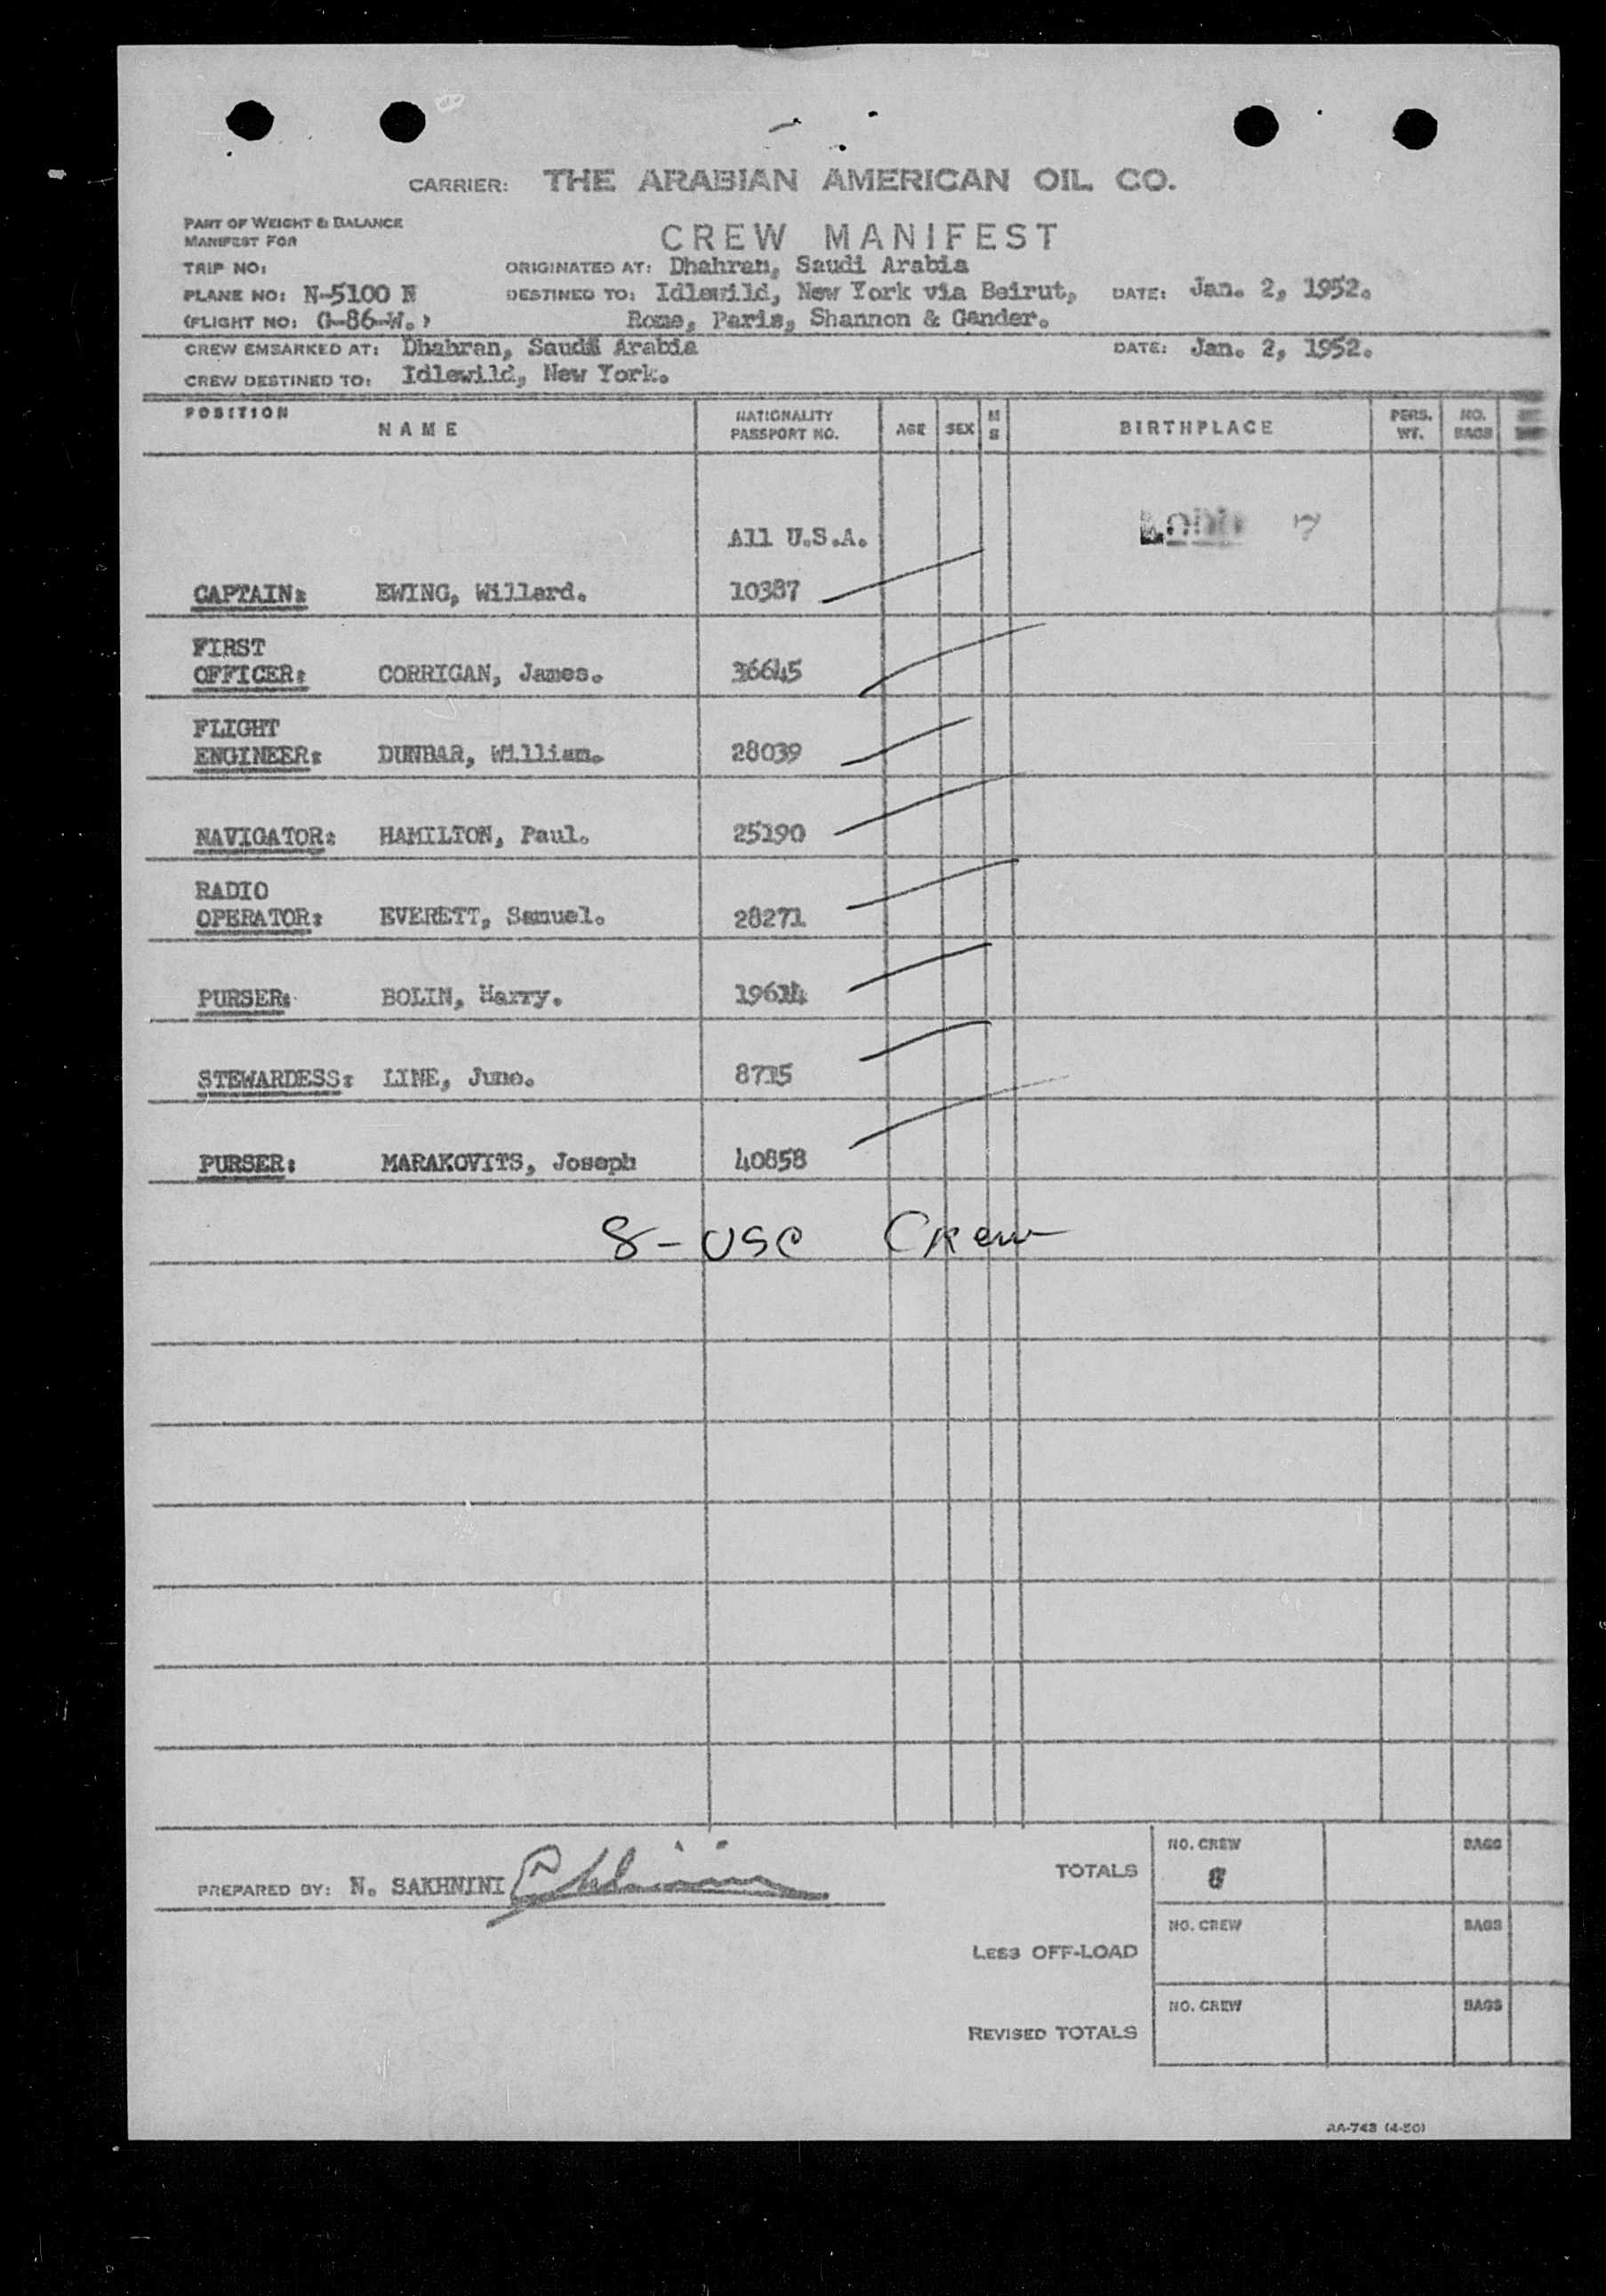 CARRIER: THE ARABIAN AMERICAN OIL CO.
PART OF WEIGHT & BALANCE
MANIFEST FOR
CREW MANIFEST
TRIP NO:
ORIGINATED AT: Dhahran, Saudi Arabia
PLANE NO: N-5100 N
DESTINED TO: Idlewild, New York via Beirut, DATE: Jan. 2, 1952.
(FLIGHT NO: G-86-W.)
Rome, Paris, Shannon & Gander.
CREW EMBARKED AT: Dhahran, Saudi Arabia DATE: Jan. 2, 1952.
CREW DESTINED TO: Idlewild, New York.
POSITION NAME NATIONALITY PASSPORT NO. AGE SEX M S BIRTHPLACE PERS. WT. NO. BAGS
All U.S.A.
CAPTAIN: EWING, Willard. 10387
FIRST
OFFICER: CORRIGAN, James. 36645
FLIGHT
ENGINEER: DUNBAR, William. 28039
NAVIGATOR: HAMILTON, Paul. 25190
RADIO
OPERATOR: EVERETT, Samuel. 28271
PURSER: BOLIN, Harry. 19614
STEWARDESS: LINE, June. 8715
PURSER: MARAKOVITS, Joseph 40858
8-USC Crew
PREPARED BY: N. SAKHNINI
TOTALS NO. CREW 8 BAGS
LESS OFF-LOAD NO. CREW BAGS
REVISED TOTALS NO. CREW BAGS
AA-743 (4-50)